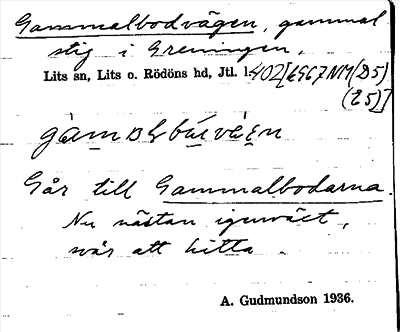 Gammalbodvägen, gammal
stig i Greningen,
Lits sn, Lits o. Rödöns hd, Jtl. l. 402 [LG67NM (D5)
(E5)]
Går till Gammalbodarna.
Nu nästan igenväxt,
svår att hitta.
A. Gudmundson 1936.